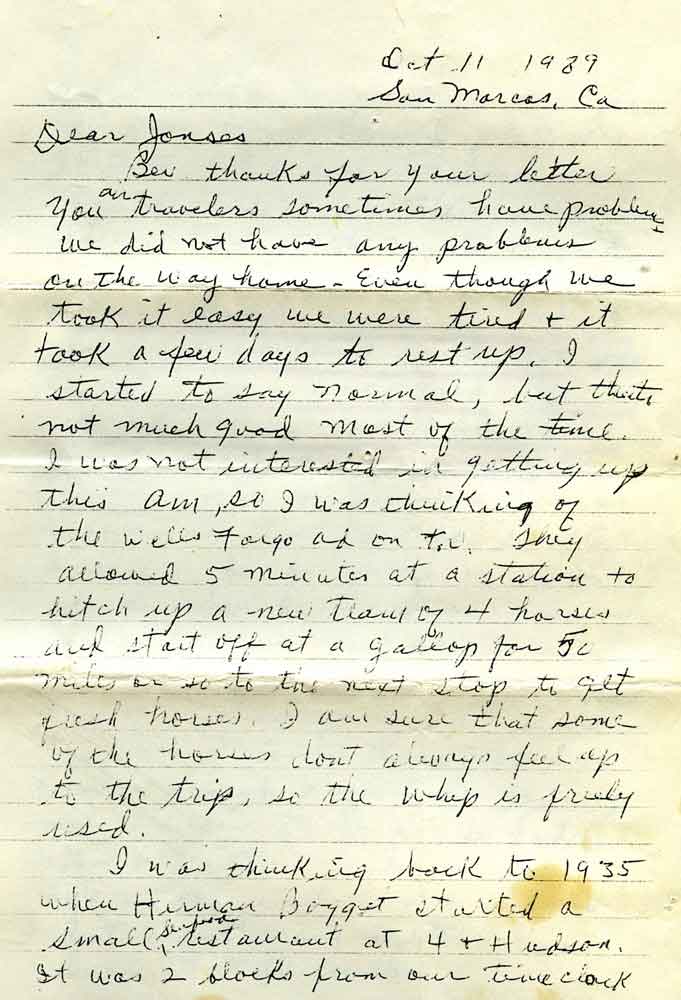 Oct 11 1989
San Marcos, Ca
Dear Jonses
Bev thanks for your letter
You air travelers sometimes have problems
we did not have any problems
on the way home - Even though we
took it easy we were tired + it
took a few days to rest up. I
started to say normal, but thats
not much good most of the time.
I was not interested in getting up
this am, so I was thinking of
the Wells Fargo ad on T.V. They
allowed 5 minutes at a station to
hitch up a new team of 4 horses
and start off at a gallop for 50
miles or so to the next stop to get
fresh horses. I am sure that some
of the horses dont always feel up
to the trip, so the whip is freely
used.
I was thinking back to 1935
when Herman started a
small seafood restaurant at 4 + Hudson.
It was 2 blocks from our time clock